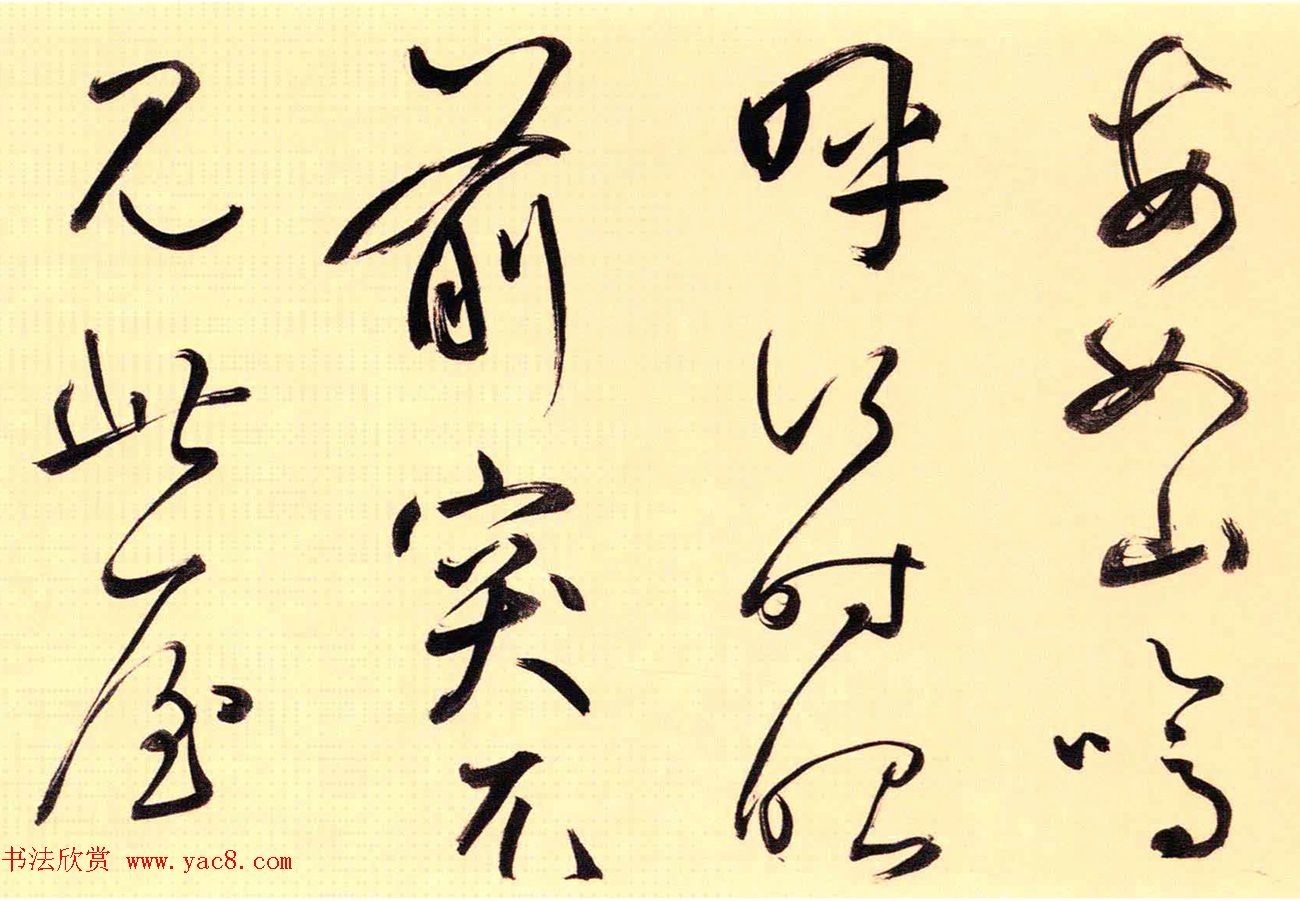 安如山嗚
呼何時眼
前突兀
見此屋
书法欣赏 www.yac8.com